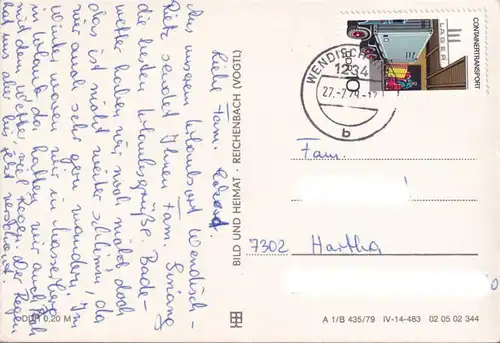 Liebe Fam.
Aus unserem Urlaubsort Wendisch-
Rietz sendet Ihnen Fam.
die besten Urlaubsgrüße. Bade-
wetter haben wir noch nicht, doch
das ist nicht weiter schlimm, da
wir auch sehr gern wandern. Im
Winter waren wir in
in Urlaub, da hatten wir auch Pech
mit dem Wetter, viel Regen. Der Regen
hat uns aber bis jetzt verschont.
BILD UND HEIMAT · REICHENBACH (VOGTL)
CONTAINERTRANSPORT
LAGER
DDR
10
WENDISCH
1234
27.-7.79.-17
b
Fam.
7302 Hartha
DDR 0,20 M
A 1/B 435/79 IV-14-483 02 05 02 344